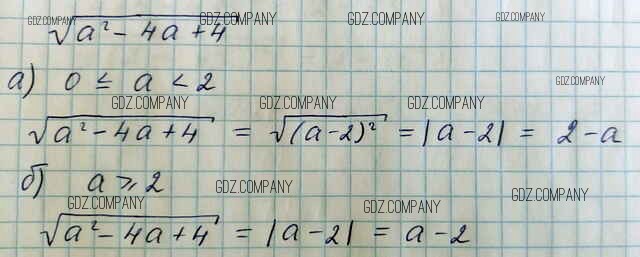 GDZ.COMPANY GDZ.COMPANY GDZ.COMPANY GDZ.COMPANY
√a² - 4a + 4
а) 0 ≤ a < 2 GDZ.COMPANY
GDZ.COMPANY GDZ.COMPANY GDZ.COMPANY
√a² - 4a + 4 = √(a-2)² = |a-2| = 2-a
б) a ⩾ 2 GDZ.COMPANY GDZ.COMPANY
GDZ.COMPANY GDZ.COMPANY
√a² - 4a + 4 = |a-2| = a-2